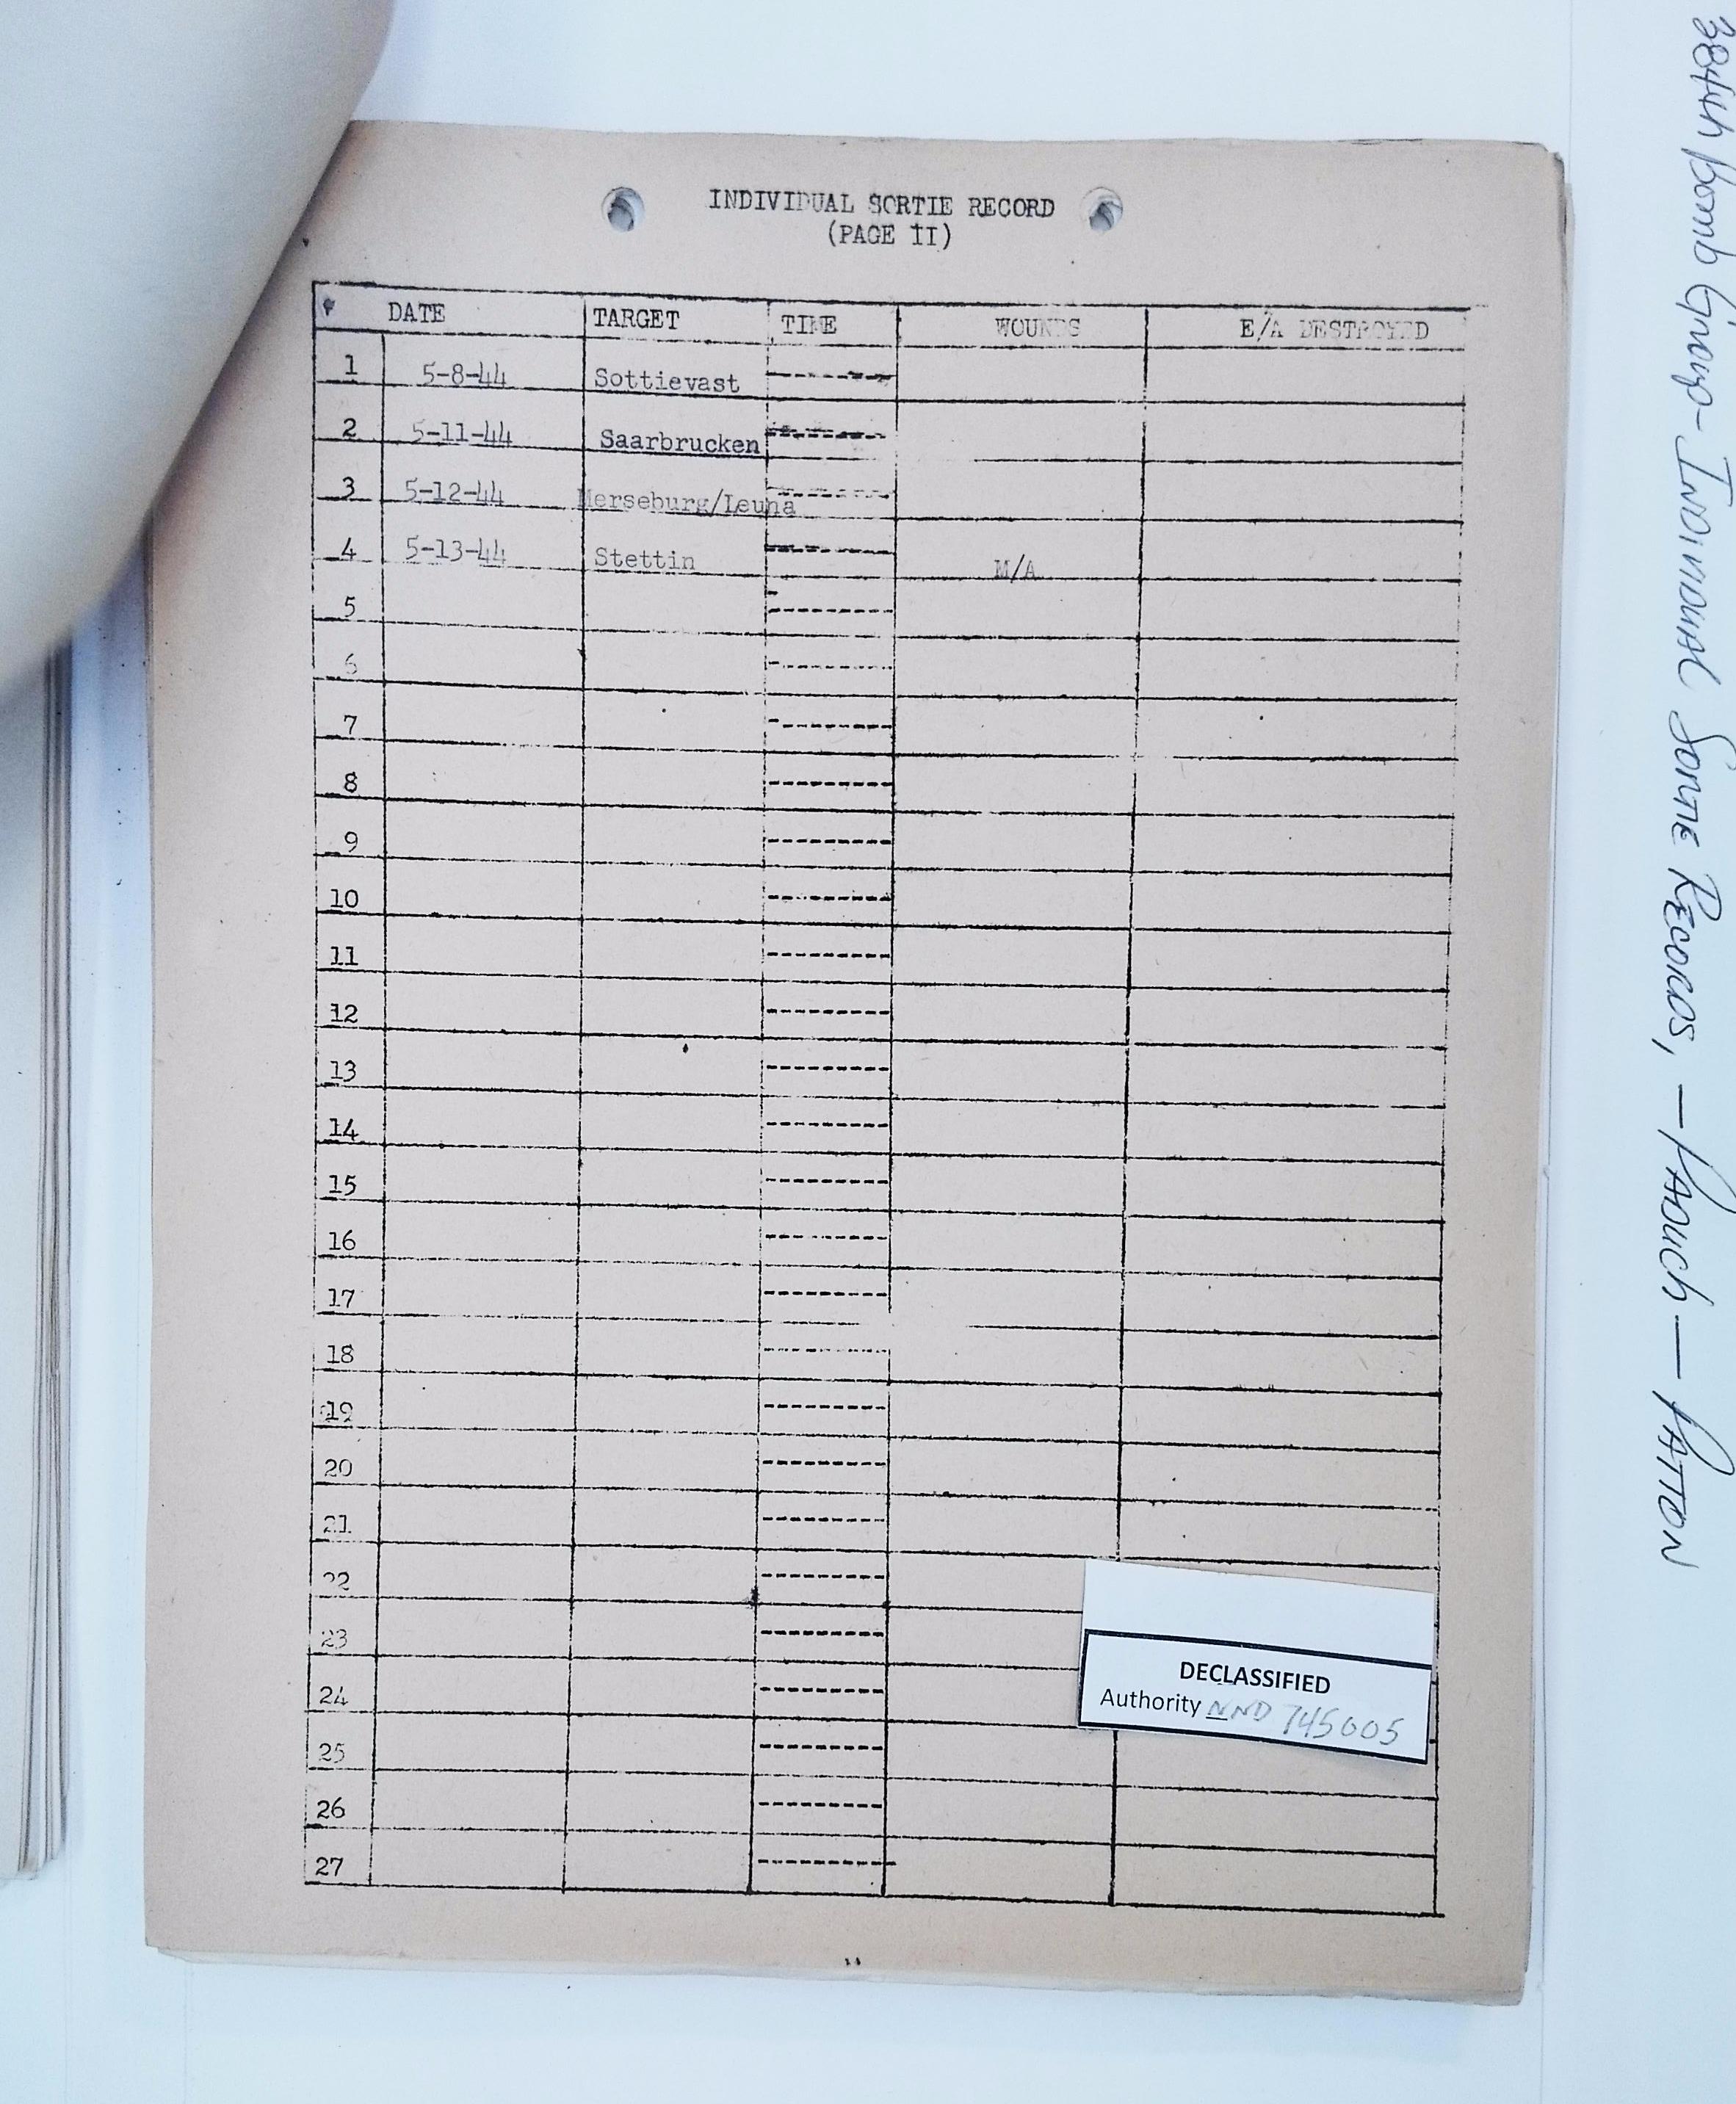 INDIVIDUAL SORTIE RECORD
(PAGE II)
DATE TARGET TIME WOUNDS E/A DESTROYED
1 5-8-44 Sottievast
2 5-11-44 Saarbrucken
3 5-12-44 Merseburg/Leuna
4 5-13-44 Stettin M/A
5
6
7
8
9
10
11
12
13
14
15
16
17
18
19
20
21
22
23
24
25
26
27
DECLASSIFIED
Authority NND 745005
384th Bomb Group - Individual Sortie Records, - Paduch - Patton